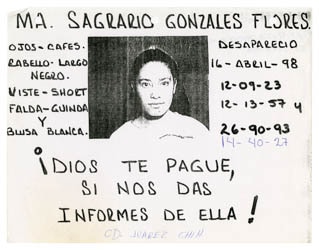 MA. SAGRARIO GONZALES FLORES.
OJOS-CAFES.
KABELLO-LARGO
NEGRO.
VISTE-SHORT
FALDA-GUINDA
Y
BLUSA BLANCA.
DESAPARECIO
16-ABRIL-98
12-09-23
12-13-57 y
26-90-93
14-40-27
¡DIOS TE PAGUE,
SI NOS DAS
INFORMES DE ELLA!
CD. JUAREZ CHIH